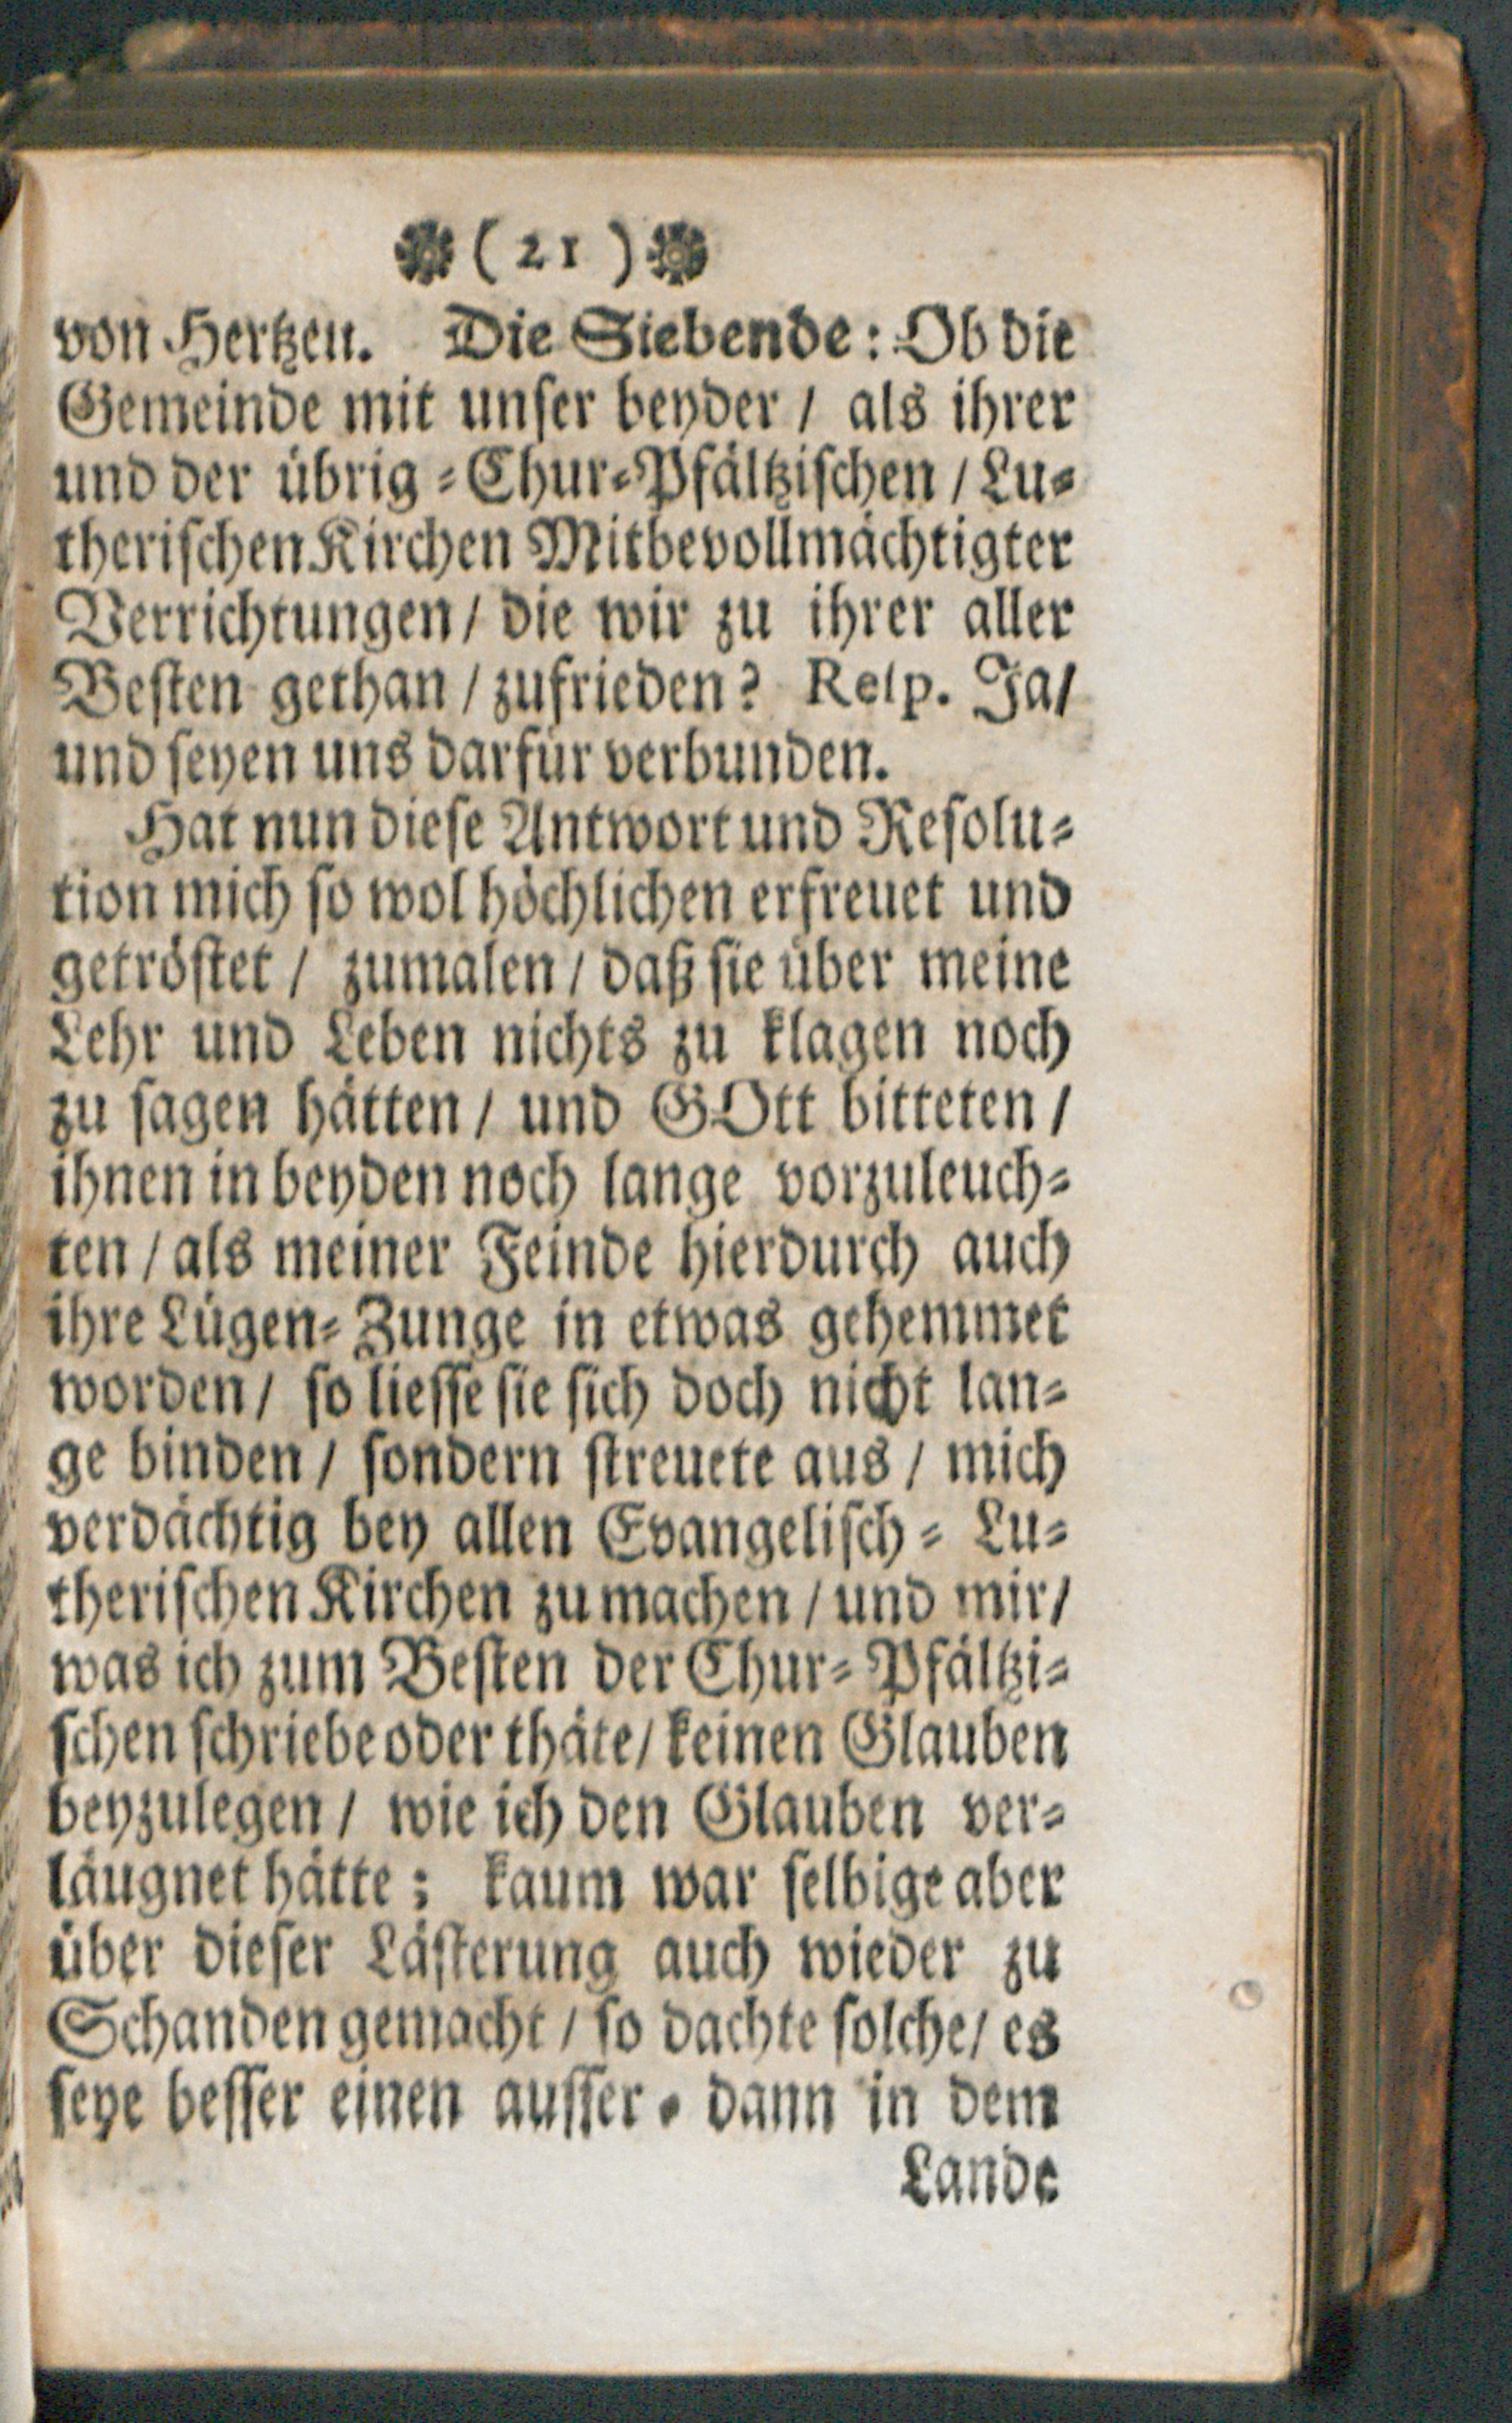 ❁ ( 21 ) ❁
von Hertzen. Die Siebende: Ob die
Gemeinde mit unser beyder / als ihrer
und der übrig-Chur-Pfältzischen / Lu-
therischen Kirchen Mitbevollmächtigter
Verrichtungen / die wir zu ihrer aller
Besten gethan / zufrieden? Resp. Ja /
und seyen uns darfür verbunden.
Hat nun diese Antwort und Resolu-
tion mich so wol höchlichen erfreuet und
getröstet / zumalen / daß sie über meine
Lehr und Leben nichts zu klagen noch
zu sagen hätten / und GOtt bitteten /
ihnen in beyden noch lange vorzuleuch-
ten / als meiner Feinde hierdurch auch
ihre Lügen-Zunge in etwas gehemmet
worden / so liesse sie sich doch nicht lan-
ge binden / sondern streuete aus / mich
verdächtig bey allen Evangelisch-Lu-
therischen Kirchen zu machen / und mir /
was ich zum Besten der Chur-Pfältzi-
schen schriebe oder thäte / keinen Glauben
beyzulegen / wie ich den Glauben ver-
läugnet hätte; kaum war selbige aber
über dieser Lästerung auch wieder zu
Schanden gemacht / so dachte solche / es
seye besser einen ausser- dann in dem
Lande